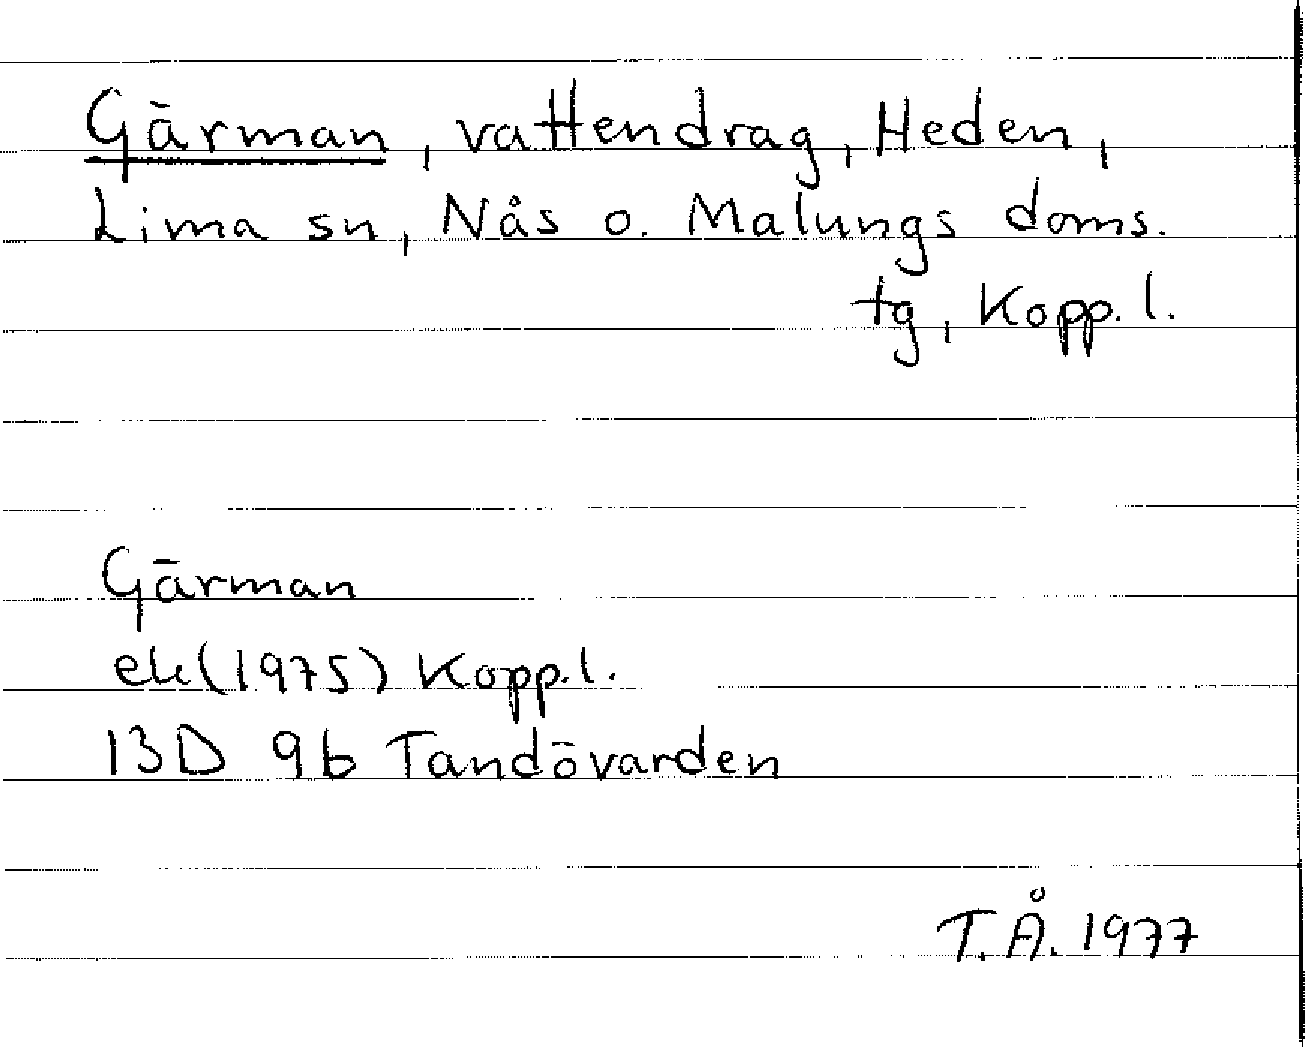 Gärman, vattendrag, Heden,
Lima sn, Nås o. Malungs doms.
tg, Kopp. l.
Gärman
ek (1975) Kopp. l.
13D 9b Tandövarden
T.Å. 1977